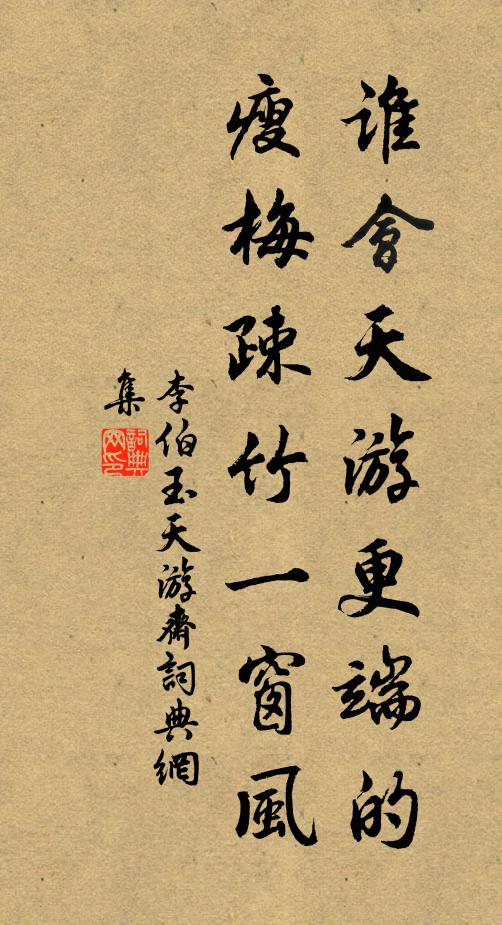 誰會天游更端的
瘦梅疎竹一窗風
李伯玉天游齋詞典網
集
詞典網印